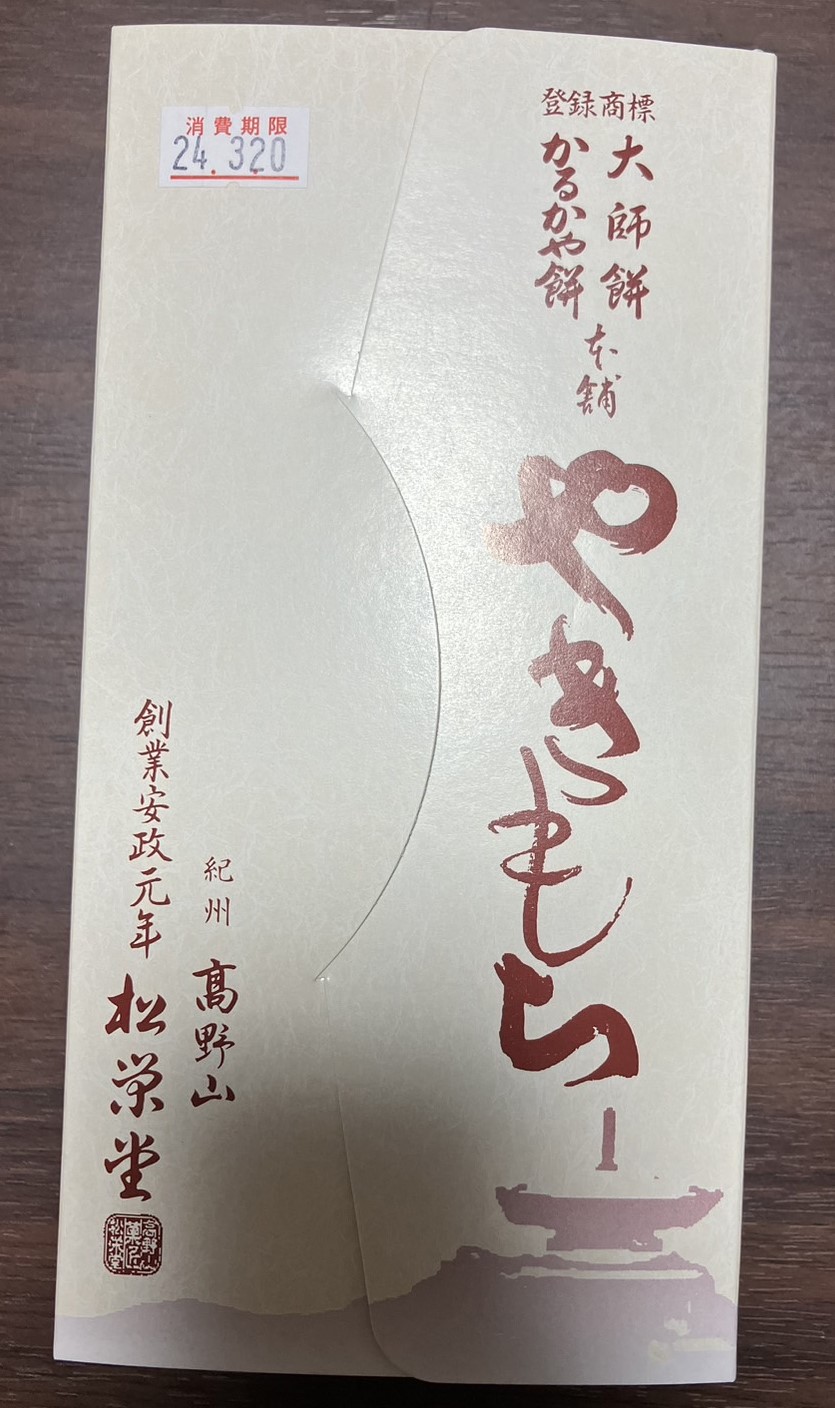 登録商標
大師餅
かるかや餅
本舗
やきもち
消費期限
24.3.20
紀州 高野山
創業安政元年 松栄堂